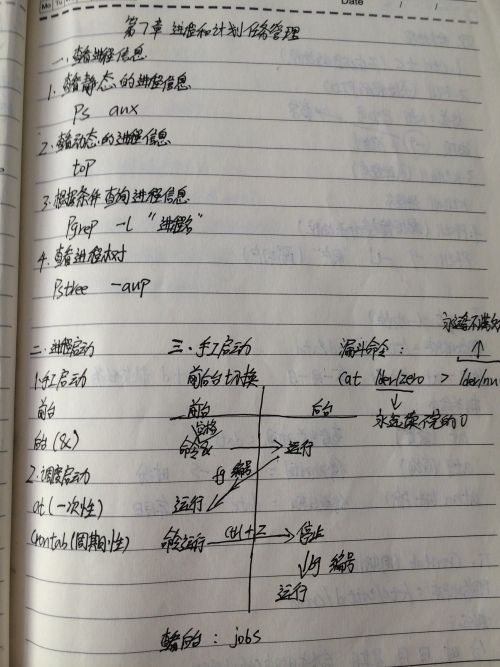 Date
第7章 进程和计划任务管理
一、查看进程信息
1. 查看静态的进程信息
Ps aux
2. 查看动态的进程信息
top
3. 根据条件查询进程信息
Pgrep -l "进程名"
4. 查看进程树
Pstree -aup
二、进程启动
1. 手工启动
前台
后台(&)
2. 调度启动
at(一次性)
crontab(周期性)
三、手工启动
前后台切换
前台 后台
空格
命令& 运行
fg 编号
运行
命令运行 Ctrl+Z 停止
bg 编号
运行
查看后台: jobs
漏斗命令:
永远塞不满的
Cat /dev/zero > /dev/nu
永远读不完的0